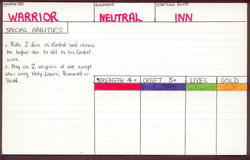 CHARACTER ALIGNMENT STARTING POINT
WARRIOR NEUTRAL INN
SPECIAL ABILITIES
1. Rolls 2 dice in Combat and chooses
the higher one to add to his Combat
score.
2. May use 2 weapons at once except
when using Holy Lance, Runesword or
Shield.
STRENGTH 4 CRAFT 3 LIVES GOLD